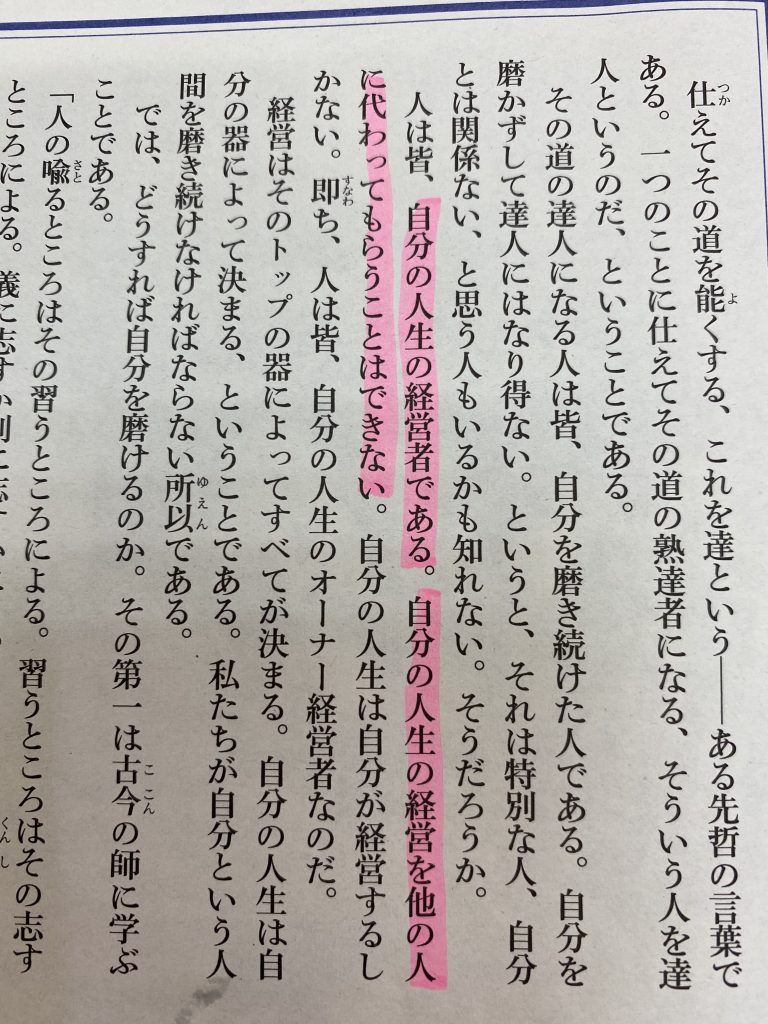 仕えてその道を能くする、これを達という——ある先哲の言葉で
ある。一つのことに仕えてその道の熟達者になる、そういう人を達
人というのだ、ということである。
その道の達人になる人は皆、自分を磨き続けた人である。自分を
磨かずして達人にはなり得ない。というと、それは特別な人、自分
とは関係ない、と思う人もいるかも知れない。そうだろうか。
人は皆、自分の人生の経営者である。自分の人生の経営を他の人
に代わってもらうことはできない。自分の人生は自分が経営するし
かない。即ち、人は皆、自分の人生のオーナー経営者なのだ。
経営はそのトップの器によってすべてが決まる。自分の人生は自
分の器によって決まる、ということである。私たちが自分という人
間を磨き続けなければならない所以である。
では、どうすれば自分を磨けるのか。その第一は古今の師に学ぶ
ことである。
「人の喩るところはその習うところによる。習うところはその志す
ところによる。義に志すか利に志すか